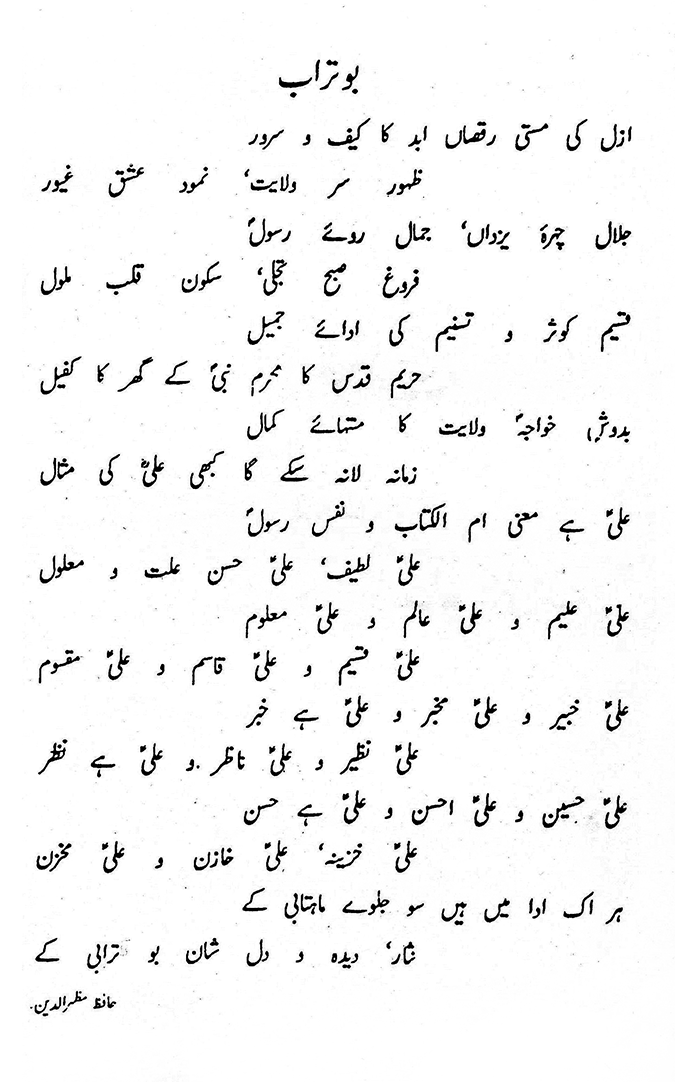 بو تراب
ازل کی مستی رقصاں ابد کا کیف و سرور
ظہور سر ولایت، نمود عشق غیور
جلال چہرۂ یزداں، جمال روئے رسولؐ
فروغ صبح تجلی، سکون قلب ملول
قسیم کوثر و تسنیم کی ادائے جمیل
حریم قدس کا محرم نبیؐ کے گھر کا کفیل
بدوش خواجہؐ ولایت کا منتہائے کمال
زمانہ لانہ سکے گا کبھی علیؓ کی مثال
علیؑ ہے معنی ام الکتاب و نفس رسولؐ
علیؑ لطیف، علیؑ حسن علت و معلول
علیؑ علیم و علیؑ عالم و علیؑ معلوم
علیؑ قسیم و علیؑ قاسم و علیؑ مقسوم
علیؑ خبیر و علیؑ مخبر و علیؑ ہے خبر
علیؑ نظیر و علیؑ ناظر و علیؑ ہے نظر
علیؑ حسین و علیؑ احسن و علیؑ ہے حسن
علیؑ خزینہ، علیؑ خازن و علیؑ مخزن
ہر اک ادا میں ہیں سو جلوے ماہتابی کے
نثار، دیدہ و دل شان بو ترابی کے
حافظ مظہرالدین۔